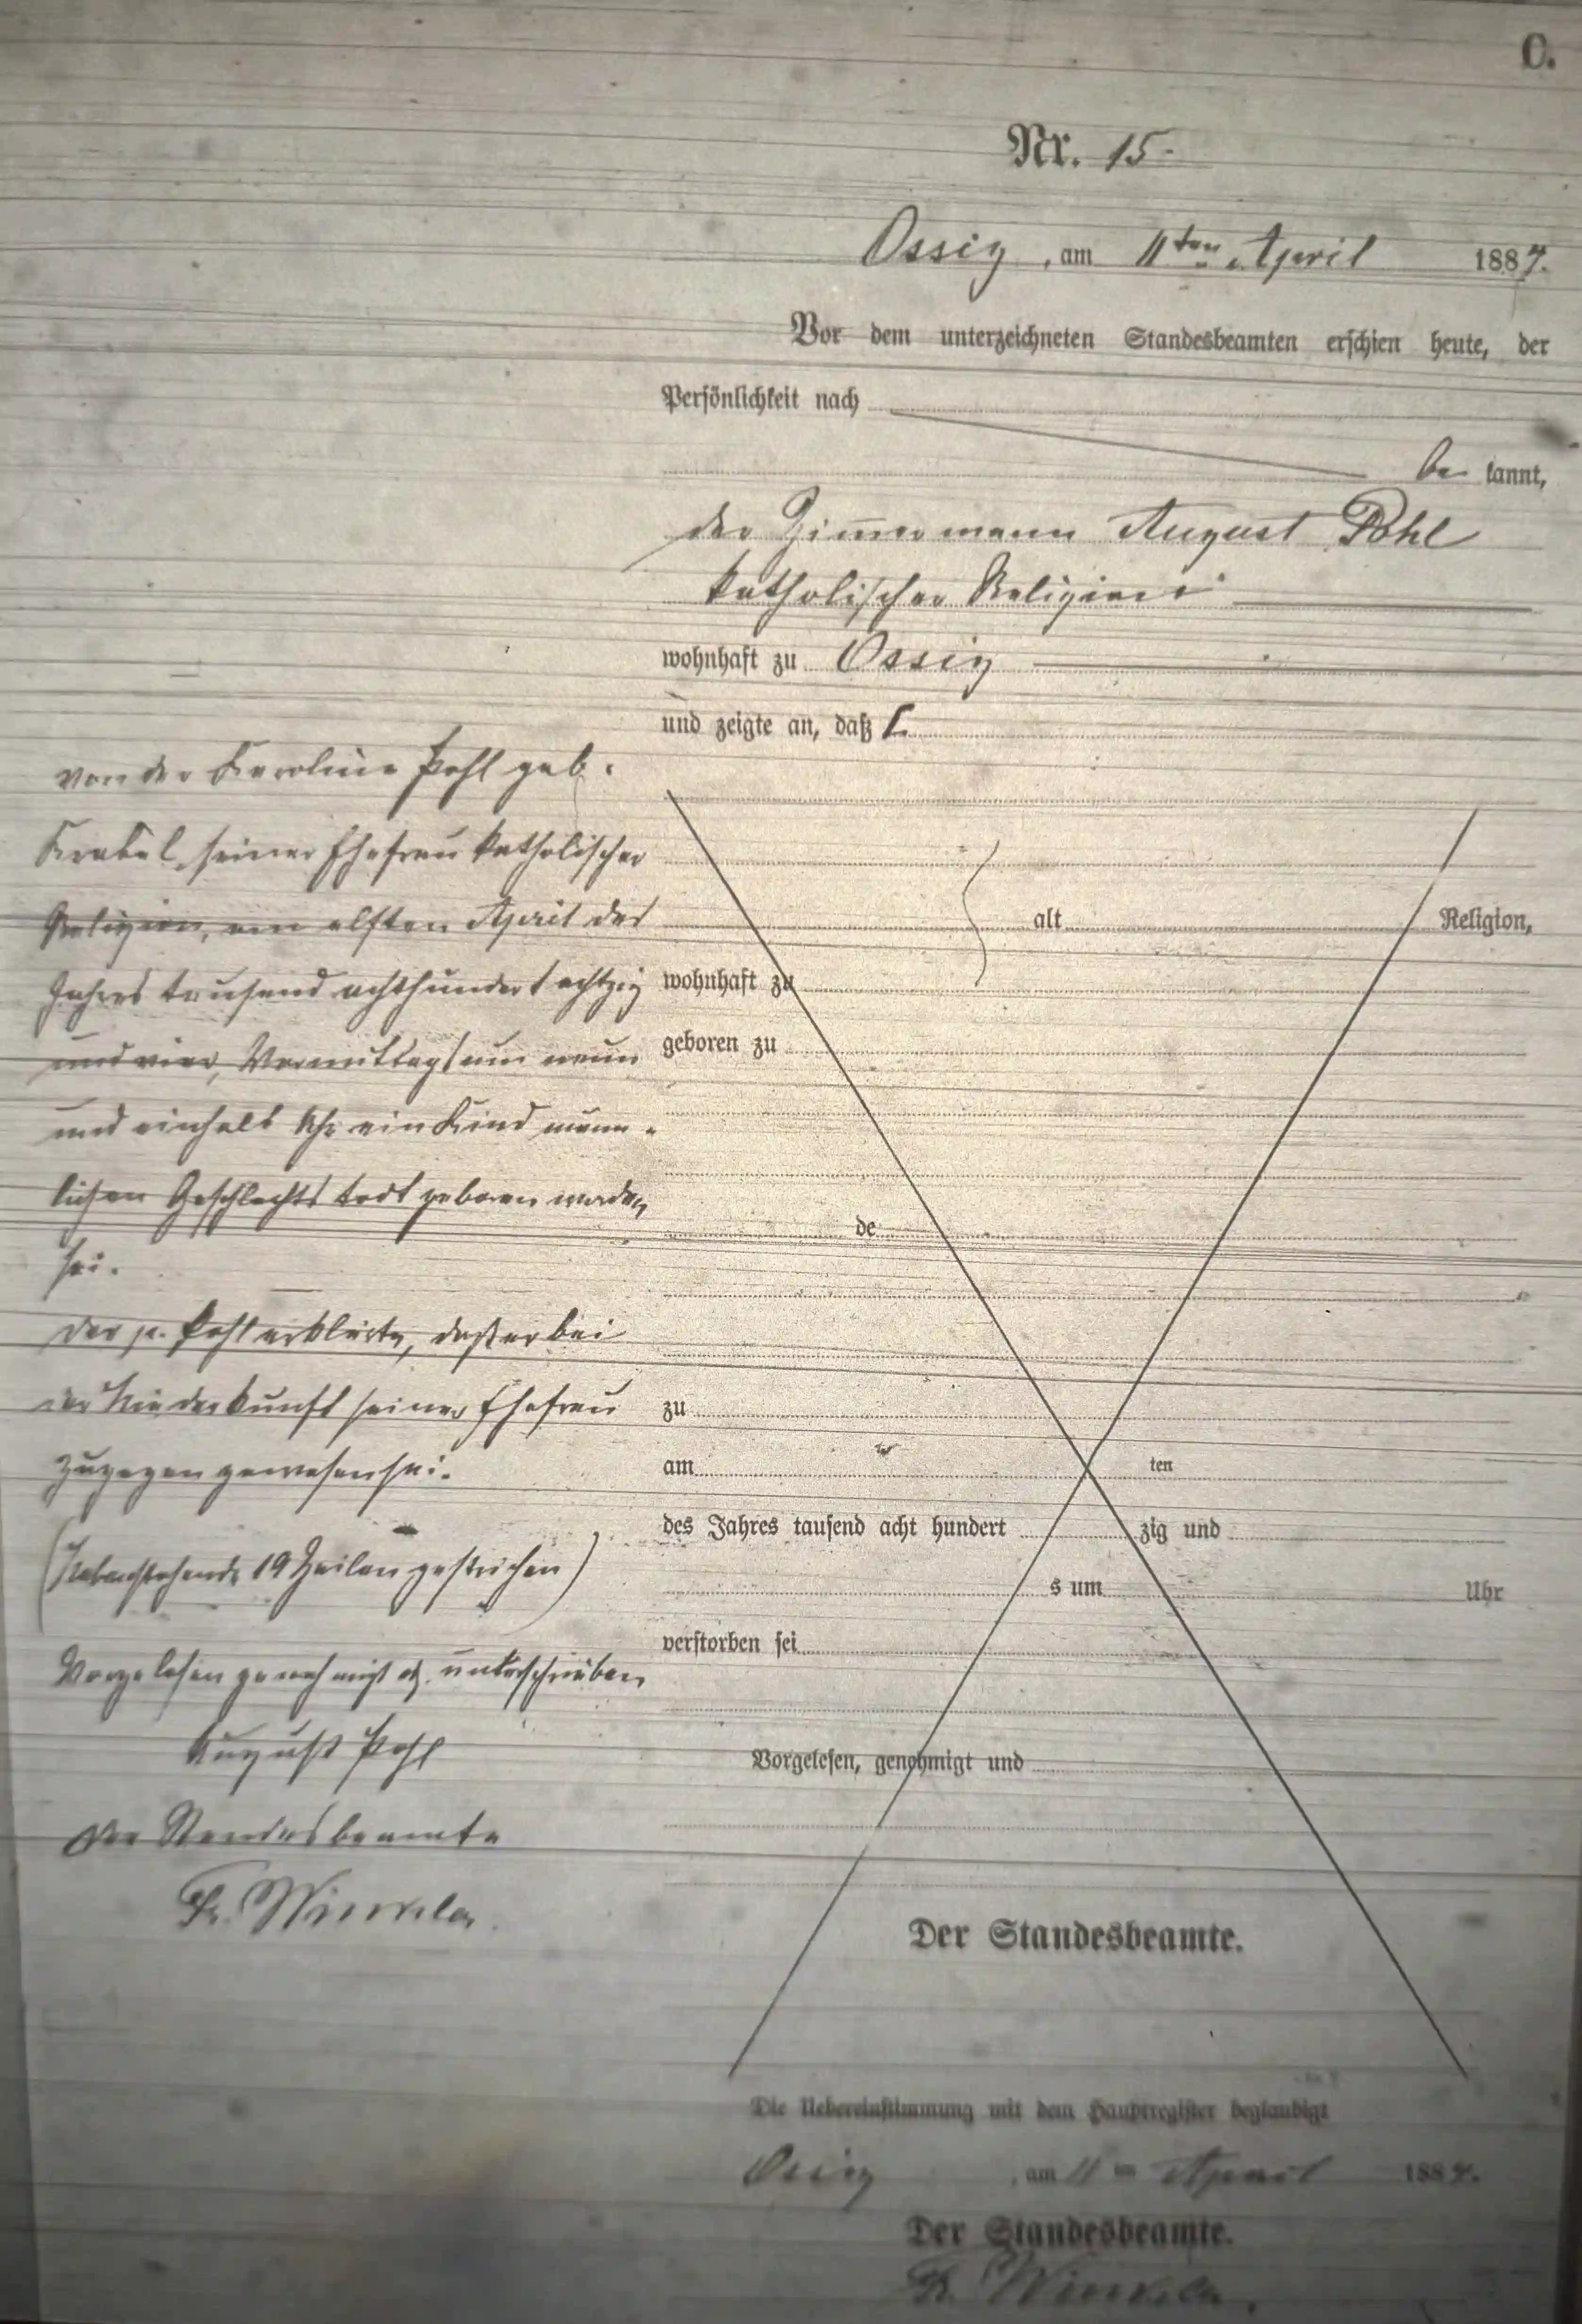 C.
Nr. 15.
Ossig, am 11ten April 1884.
Vor dem unterzeichneten Standesbeamten erschien heute, der
Persönlichkeit nach
be kannt,
der Zimmermann August Pohl
katholischer Religion
wohnhaft zu Ossig
und zeigte an, daß
von der Karoline Pohl geb.
seiner Ehefrau katholischer
Religion, am elften April des
Jahres tausend achthundert achtzig
und vier, Vormittags um neun
und einhalb Uhr ein Kind männ-
lichen Geschlechts todt geboren worden
sei.
Der p. Pohl erklärte, daß er bei
der Niederkunft seiner Ehefrau
zugegen gewesen sei.
(Nebenstehende 19 Zeilen gestrichen)
Vorgelesen genehmigt und unterschrieben
August Pohl
Der Standesbeamte
Fr. Winkler
alt Religion,
wohnhaft zu
geboren zu
de
zu
am ten
des Jahres tausend acht hundert zig und
s um Uhr
verstorben sei
Vorgelesen, genehmigt und
Der Standesbeamte.
Die Uebereinstimmung mit dem Hauptregister beglaubigt
Ossig, am 11ten April 1884.
Der Standesbeamte.
Fr. Winkler.